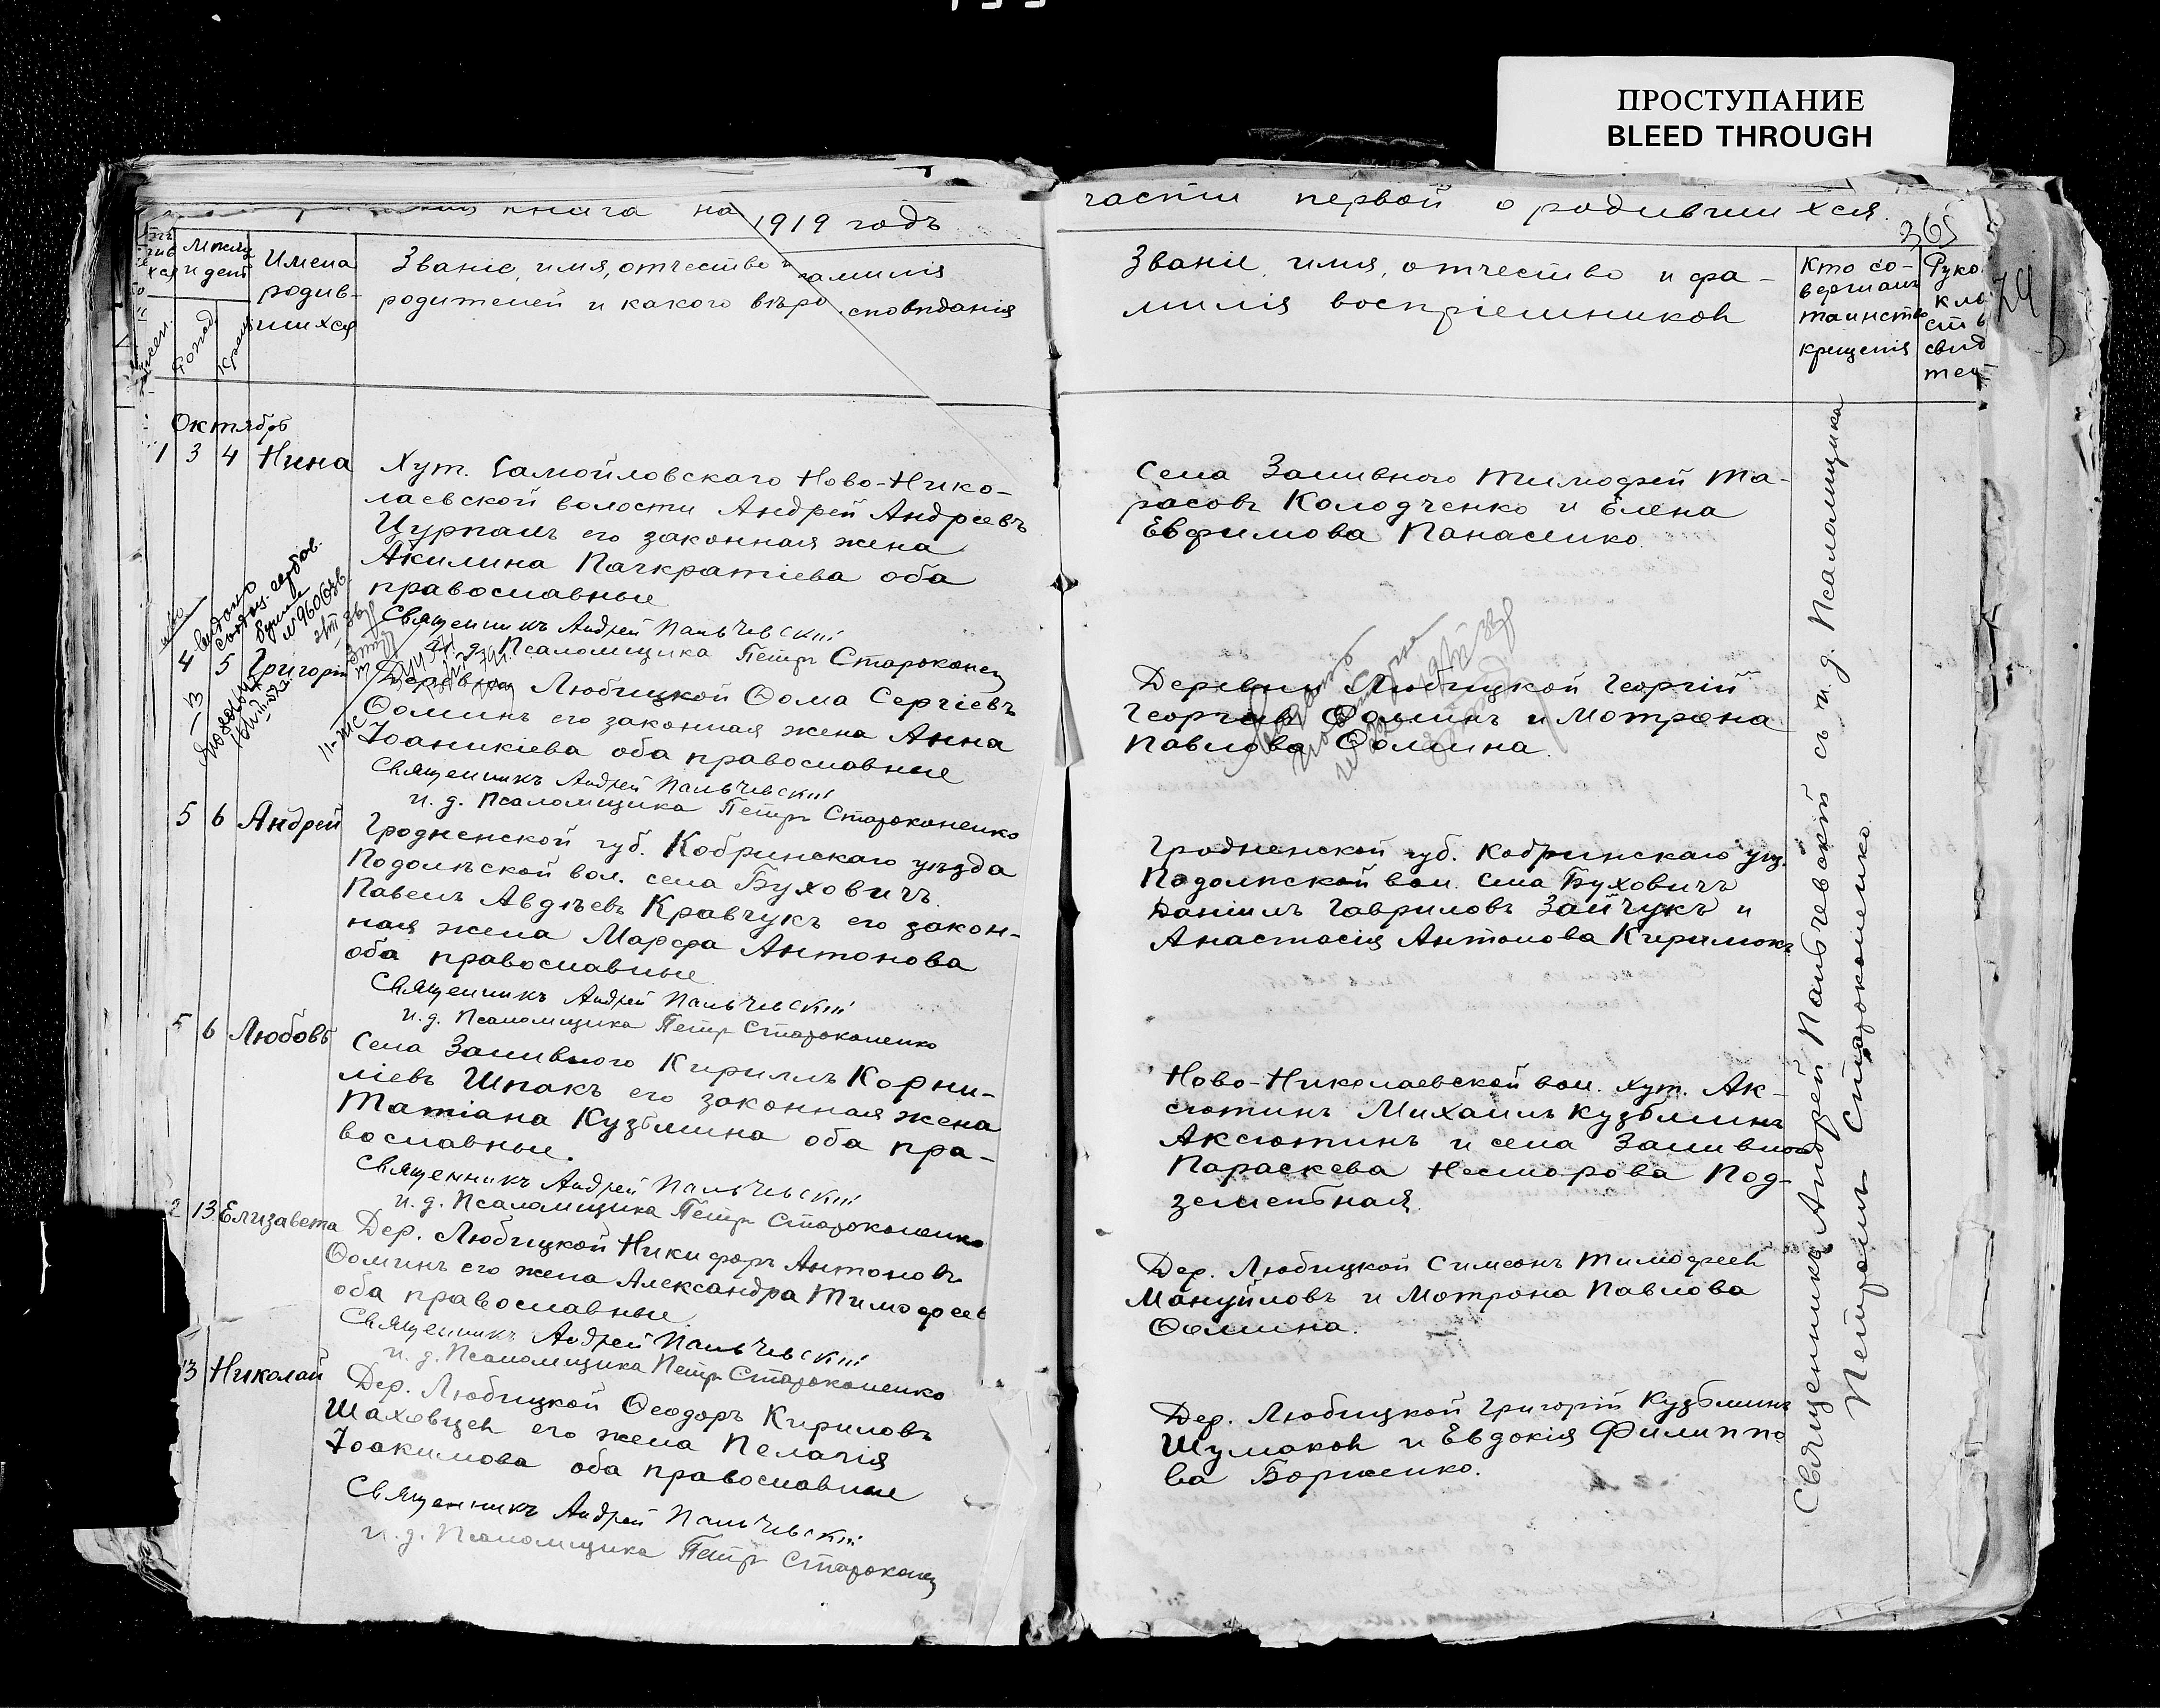 ПРОСТУПАНИЕ
BLEED THROUGH
книга на 1919 годъ
Имена
родив-
шихся
Званіе, имя, отчество и фамилія
родителей и какого вѣроисповѣданія
Октябрь
1 3 4 Нина
Хут. Самойловскаго Ново-Нико-
лаевской волости Андрей Андреевъ
Цурпалъ его законная жена
Акилина Панкратіева оба
православные
Священникъ Андрей Пальчевскій
и. д. Псаломщика Петръ Староконен
4 5 Григорій
Деревни Любицкой Ѳома Сергіевъ
Ѳоминъ его законная жена Анна
Іоаникіева оба православные
Священникъ Андрей Пальчевскій
и. д. Псаломщика Петръ Староконенко
5 6 Андрей
Гродненской губ. Кобринскаго уѣзда
Подолѣской вол. села Буховичъ
Павелъ Авдѣевъ Кравчукъ его закон-
ная жена Марфа Антонова
оба православные
Священникъ Андрей Пальчевскій
и. д. Псаломщика Петръ Староконенко
5 6 Любовь
Села Заливного Кириллъ Корни-
ліевъ Шпакъ его законная жена
Татіана Кузьмина оба пра-
вославные.
Священникъ Андрей Пальчевскій
и. д. Псаломщика Петръ Староконенко
2 13 Елизавета
Дер. Любицкой Никифоръ Антоновъ
Ѳоминъ его жена Александра Тимофеев
оба православные
Священникъ Андрей Пальчевскій
и. д. Псаломщика Петръ Староконенко
13 Николай
Дер. Любицкой Ѳеодоръ Кириловъ
Шаховцев его жена Пелагія
Іоакимова оба православные
Священникъ Андрей Пальчевскій
и. д. Псаломщика Петръ Староконен
части первой о родившихся.
365
Званіе, имя, отчество и фа-
милія воспріемниковъ
Кто со-
вершалъ
таинство
крещенія
Руко
Села Заливного Тимофей Та-
расовъ Колодченко и Елена
Евфимова Панасенко.
Деревни Любицкой Георгій
Георгіев Ѳоминъ и Мотрона
Павлова Ѳомина.
Гродненской губ. Кобринскаго уѣз.
Подолѣской вол. села Буховичъ
Даніилъ Гавриловъ Зайчукъ и
Анастасія Антонова Кирилюкъ
Ново-Николаевской вол. хут. Ак-
сютинъ Михаилъ Кузьминъ
Аксютинъ и села Заливного
Параскева Несторова Под-
земельная.
Дер. Любицкой Симеонъ Тимофеев
Мануйловъ и Мотрона Павлова
Ѳомина.
Дер. Любицкой Григорій Кузьминъ
Шумаков и Евдокія Филиппо
ва Борженко.
Священникъ Андрей Пальчевскій съ и. д. Псаломщика
Петромъ Староконенко